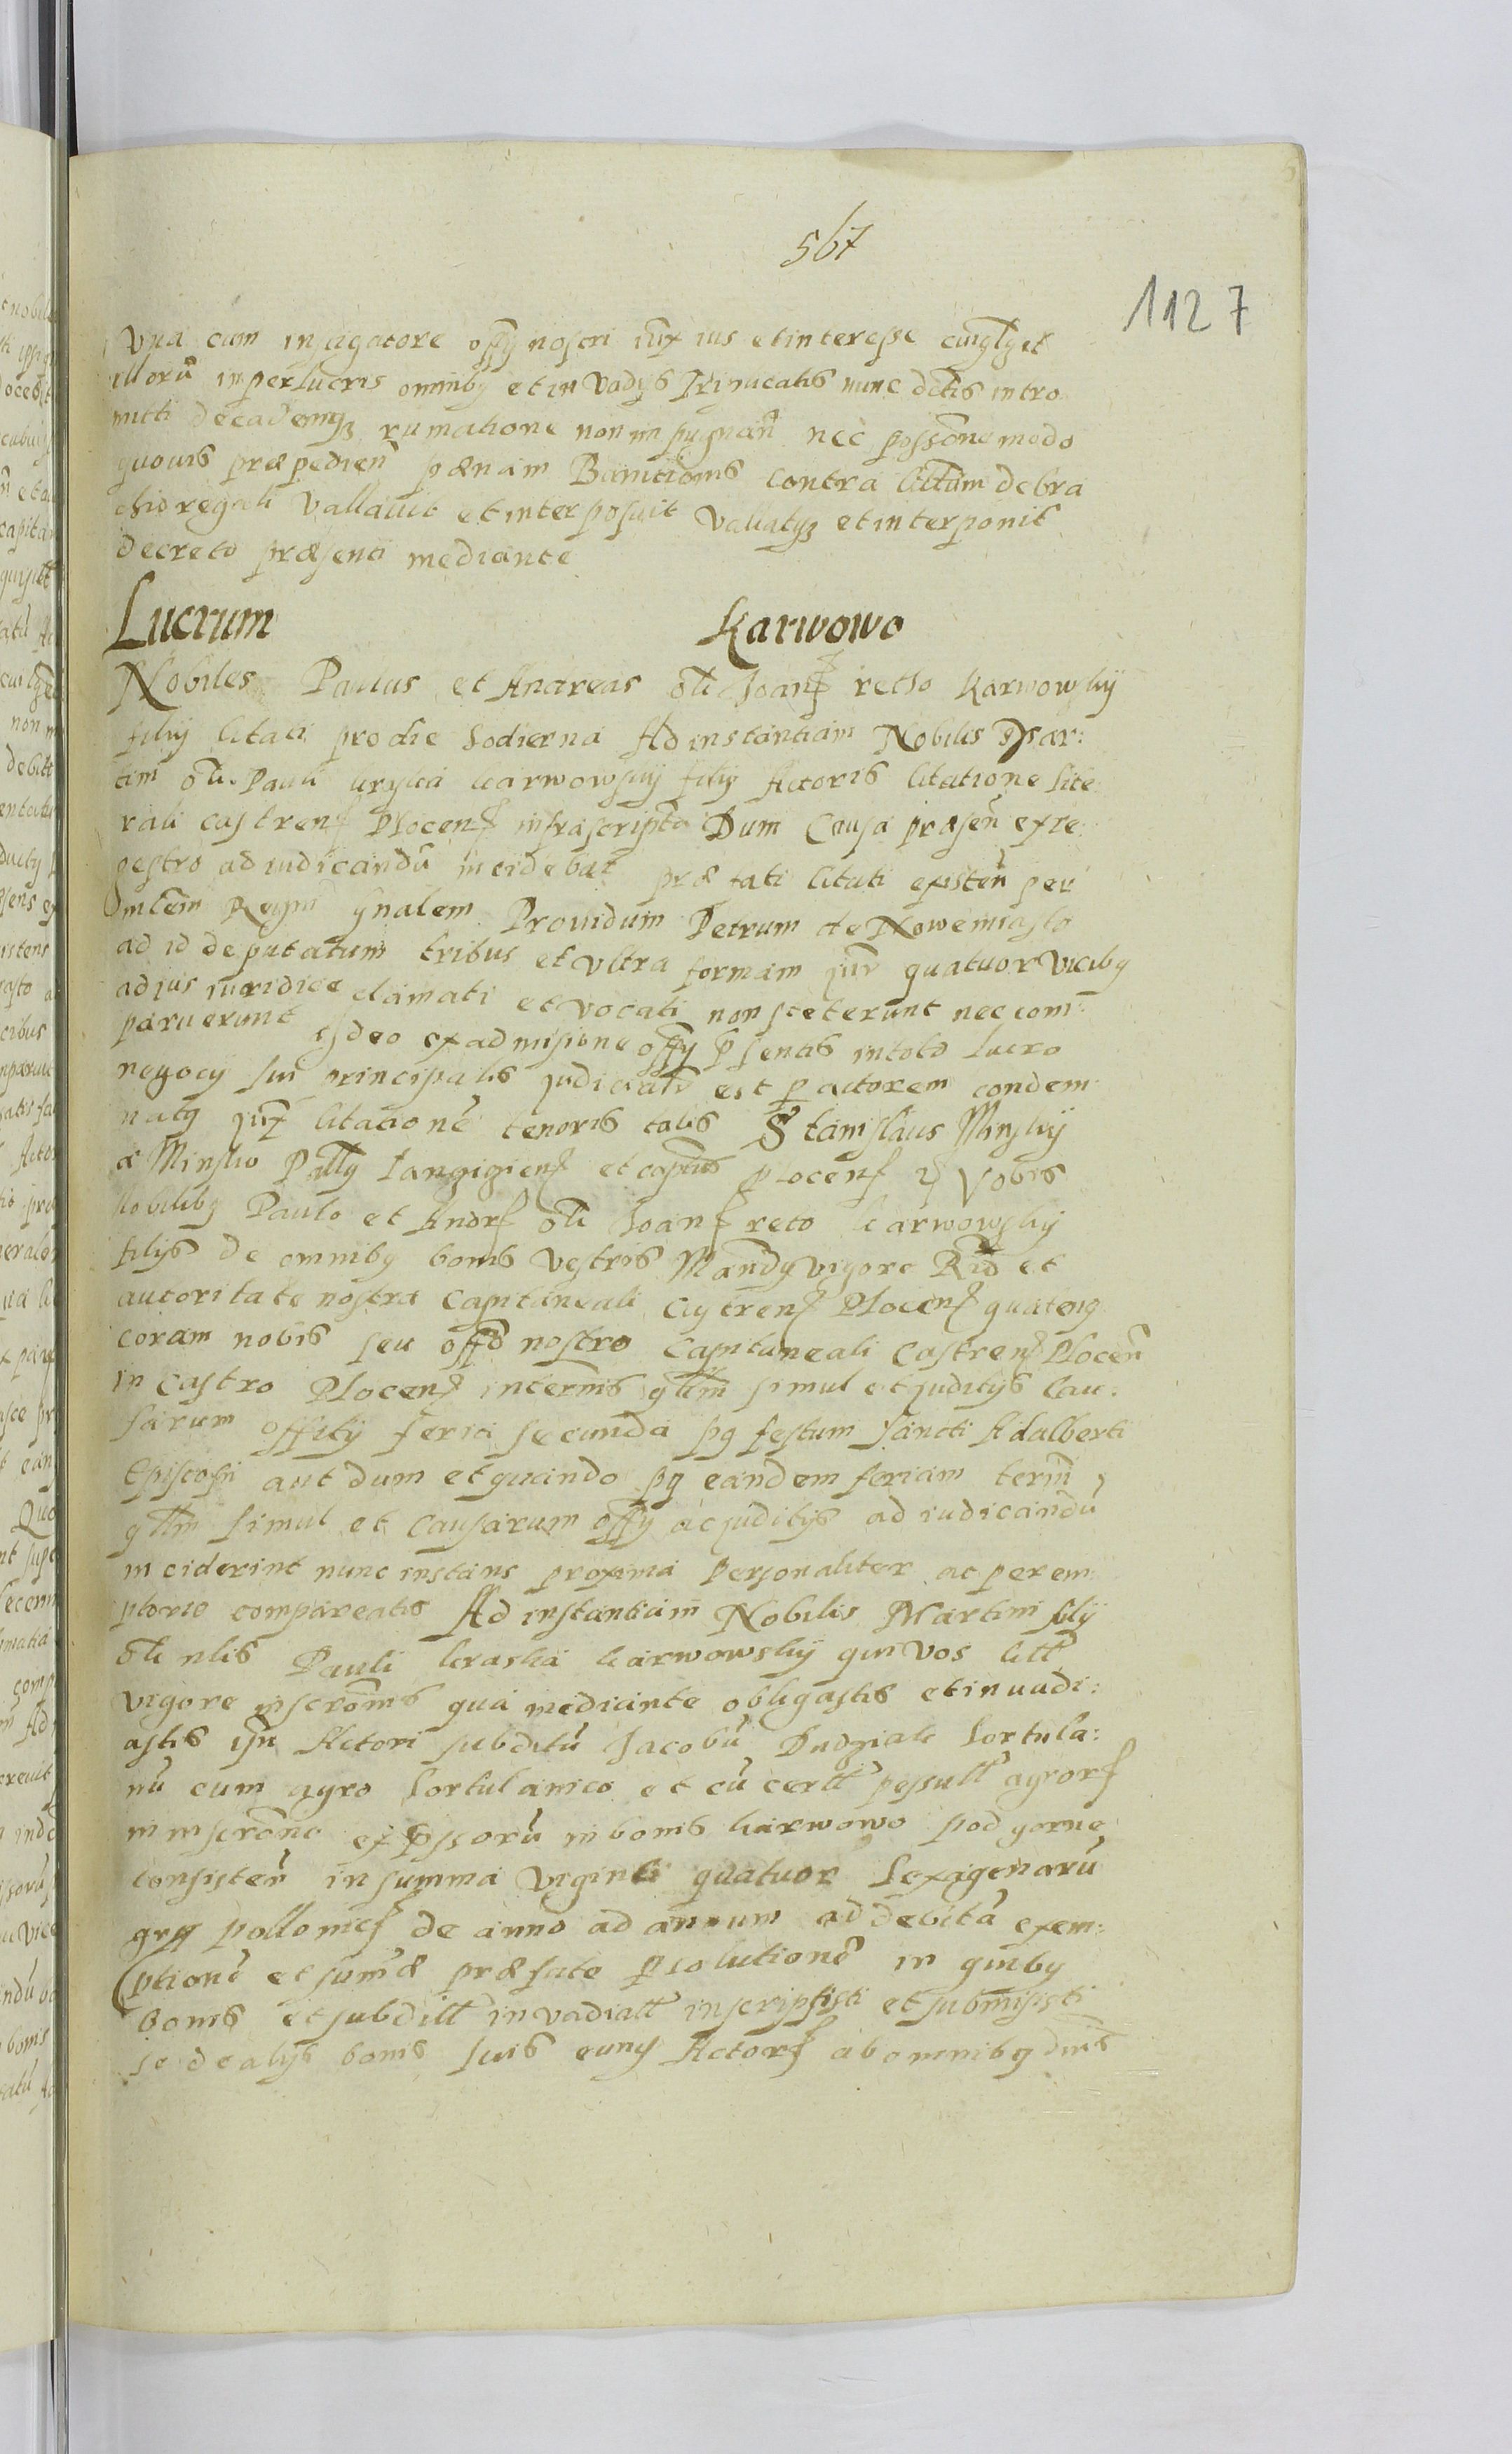 567
1127
Vna cum instigatore offy nostri iux ius et interesse cuiuslibet
illorū in per lucris omnibꝫ et in vadijs Trinucatis nunc dictis intro
mitti decademꝫ rumatione non impugnan̄ nec possone modo
quouis præpedien̄ pænam Bannitionis contra cittum debra
chio regali Vallauit et interposuit Vallatqꝫ et interponit
decreto præsenti mediante
Lucrum Karwowo
Nobiles Paulus et Andreas oli Joan retho Karwowskij
filij citati pro die hodierna Ad instantiam Nobilis Mar:
tini oli Pauli kryska karwowskij filij Actoris citatione lite
rali castren Plocen infrascripta Dum Causa præsen̄ ex re
gestro ad iudicandū incidebat præfati citati existen̄ per
mlem Regni gnalem Prouidum Petrum de Nowemiasto
ad id deputatum tribus et vltra formam jur quatuor vicibꝫ
ad jus iuridice clamati et vocati non steterunt nec com
paruerunt Ideo ex admisione offy psentis in toto lucro
negocy sui principalis judicialr est p actorem condem
natꝫ jux citationē tenoris talis Stanislaus Minskij
a Minsko Pallꝫ Langigien et captus Plocen Vobis
Nobilibꝫ Paulo et Andr oli Joan reto karwowskij
filijs de omnibꝫ bonis vestris Mandꝫ vigore Rid et
autoritate nostra Capitaneali Castren Plocen quatenꝫ
coram nobis seu offo nostro Capitaneali Castren Plocen̄
in Castro Plocen in terminis qllm simul et juditijs Cau:
sarum offitij feria secunda pꝫ festum Sancti Adalberti
Episcopi aut dum et quando pꝫ eandem feriam termi
qllm simul et Causarum offy ac juditijs ad iudicandū
inciderint nunc instans proxima Personaliter ac perem
ptorie compareatis Ad instantiam Nobilis Martini filij
oli nlis Pauli kraska karwowskij qui vos citt
vigore inscronis qua mediante obligastis et inuadi:
astis ipsi Actori subditū Jacobū Dudziak hortula:
nū cum agro hortulanico et cū certt pessull agror
in inscrone expssorū in bonis karwowo pod gorne
consisten̄ in summa viginti quatuor sexagenarū
grꝫ pollonic de anno ad annum ad debitā exem:
ptionē et sumæ præfate psolutionē in quibꝫ
bonis et subditt inuadiatt inscripsisti et submisisti
se de alijs bonis suis eunꝫ Actor ab omnibꝫ dnis